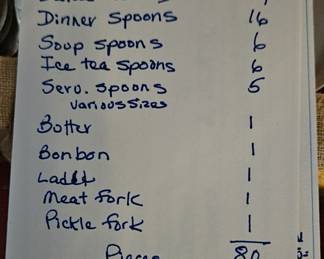 Dinner Spoons 16
Soup spoons 6
Ice tea spoons 6
Serv. spoons 5
various sizes
Butter 1
Bonbon 1
Ladel 1
Meat fork 1
Pickle fork 1
Pieces 80